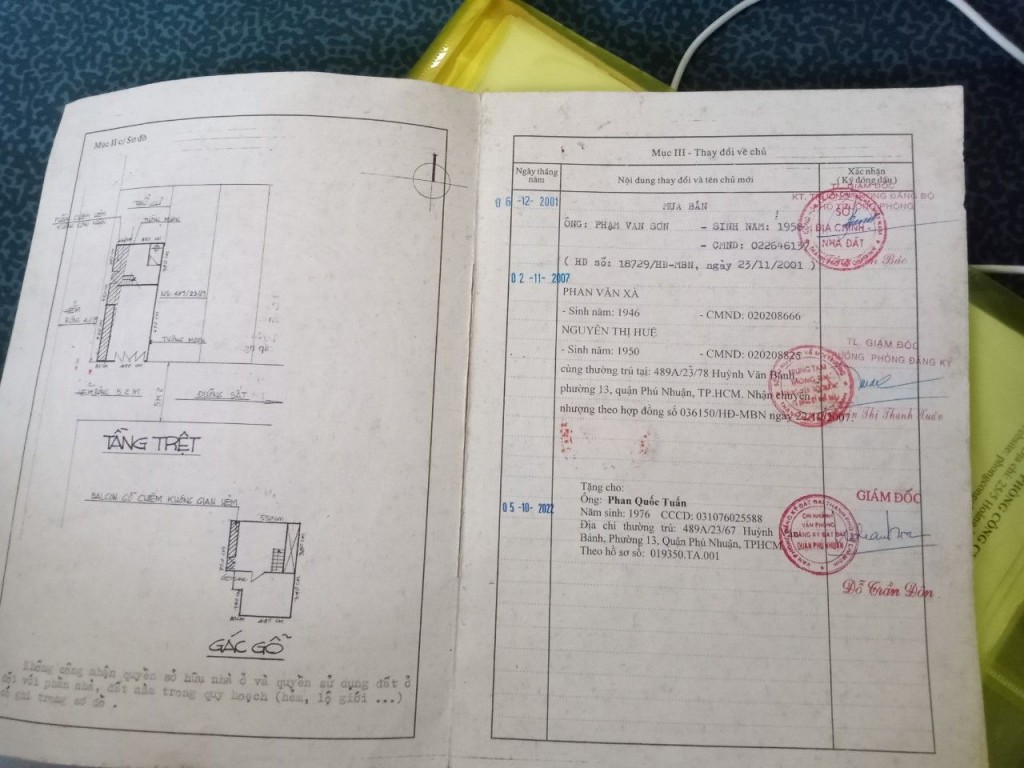 Mục II c/ Sơ đồ
TƯỜNG MƯỢN
ĐƯỜNG SẮT
TẦNG TRỆT
BALCON GỖ CHIẾM KHÔNG GIAN HẺM
GÁC GỖ
Không công nhận quyền sở hữu nhà ở và quyền sử dụng đất ở
đối với phần nhà, đất nằm trong quy hoạch (hẻm, lộ giới ...)
có ghi trong sơ đồ .
Mục III - Thay đổi về chủ
Ngày tháng năm
Nội dung thay đổi và tên chủ mới
Xác nhận
( Ký đóng dấu)
TL. GIÁM ĐỐC
06-12-2001
MUA BÁN
ÔNG: PHẠM VĂN SƠN - SINH NĂM: 1956
- CMND: 022646137
( HĐ số: 18729/HĐ-MBN, ngày 23/11/2001 )
SỞ
ĐỊA CHÍNH -
NHÀ ĐẤT
02-11-2007
PHAN VĂN XÀ
- Sinh năm: 1946 - CMND: 020208666
NGUYỄN THỊ HUỆ
- Sinh năm: 1950 - CMND: 020208825
cùng thường trú tại: 489A/23/78 Huỳnh Văn Bánh,
phường 13, quận Phú Nhuận, TP.HCM. Nhận chuyển
nhượng theo hợp đồng số 036150/HĐ-MBN ngày 22/10/2007.
TL. GIÁM ĐỐC
TRƯỞNG PHÒNG ĐĂNG KÝ
Thị Thanh Xuân
05-10-2022
Tặng cho:
Ông: Phan Quốc Tuấn
Năm sinh: 1976 CCCD: 031076025588
Địa chỉ thường trú: 489A/23/67 Huỳnh
Bánh, Phường 13, Quận Phú Nhuận, TPHCM
Theo hồ sơ số: 019350.TA.001
GIÁM ĐỐC
CHI NHÁNH
VĂN PHÒNG
ĐĂNG KÝ ĐẤT ĐAI
QUẬN PHÚ NHUẬN
Đỗ Trần Đôn